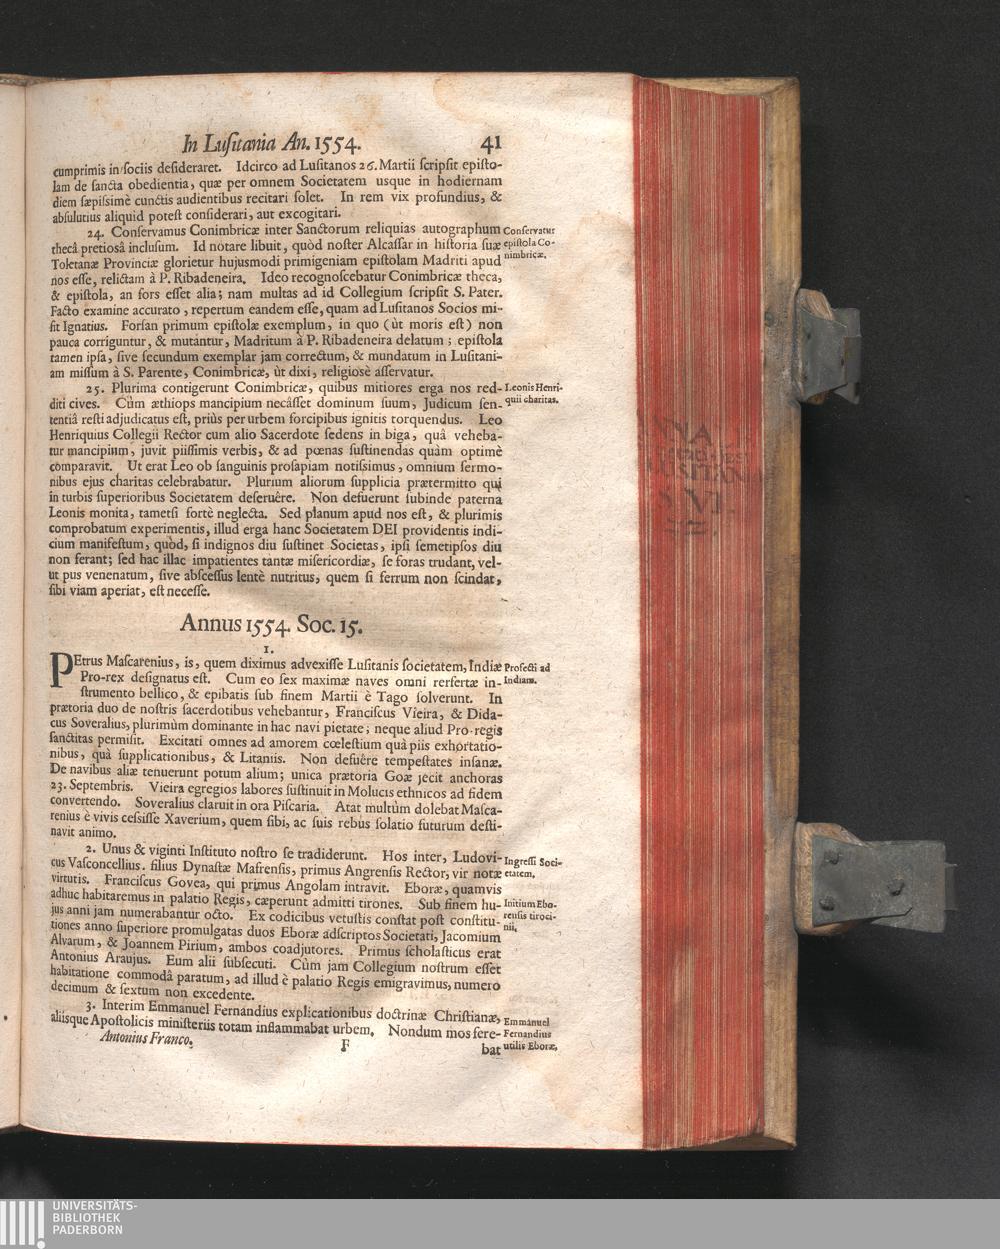 In Luſitania An. 1554. 41
cumprimis in ſociis deſideraret. Idcirco ad Luſitanos 26. Martii ſcripſit epiſto-
lam de ſancta obedientia, quæ per omnem Societatem usque in hodiernam
diem ſæpiſſimè cunctis audientibus recitari ſolet. In rem vix profundius, &
abſulutius aliquid poteſt conſiderari, aut excogitari.
24. Conſervamus Conimbricæ inter Sanctorum reliquias autographum
thecâ pretiosâ incluſum. Id notare libuit, quòd noſter Alcaſſar in hiſtoria ſuæ
Toletanæ Provinciæ glorietur hujusmodi primigeniam epiſtolam Madriti apud
nos eſſe, relictam à P. Ribadeneira. Ideo recognoſcebatur Conimbricæ theca,
& epiſtola, an fors eſſet alia; nam multas ad id Collegium ſcripſit S. Pater.
Facto examine accurato, repertum eandem eſſe, quam ad Luſitanos Socios mi-
ſit Ignatius. Forſan primum epiſtolæ exemplum, in quo (ùt moris eſt) non
pauca corriguntur, & mutantur, Madritum à P. Ribadeneira delatum; epiſtola
tamen ipſa, ſive ſecundum exemplar jam correctum, & mundatum in Luſitani-
am miſſum à S. Parente, Conimbricæ, ùt dixi, religiosè aſſervatur.
Conſervatur
epiſtola Co-
nimbricæ.
25. Plurima contigerunt Conimbricæ, quibus mitiores erga nos red-
diti cives. Cùm æthiops mancipium necâſſet dominum ſuum, Judicum ſen-
tentiâ reſti adjudicatus eſt, priùs per urbem forcipibus ignitis torquendus. Leo
Henriquius Collegii Rector cum alio Sacerdote ſedens in biga, quâ veheba-
tur mancipium, juvit piiſſimis verbis, & ad pœnas ſuſtinendas quàm optimè
comparavit. Ut erat Leo ob ſanguinis proſapiam notiſſimus, omnium ſermo-
nibus ejus charitas celebrabatur. Plurium aliorum ſupplicia prætermitto qui
in turbis ſuperioribus Societatem deſeruêre. Non defuerunt ſubinde paterna
Leonis monita, tametſi fortè neglecta. Sed planum apud nos eſt, & plurimis
comprobatum experimentis, illud erga hanc Societatem DEI providentis indi-
cium manifeſtum, quòd, ſi indignos diu ſuſtinet Societas, ipſi ſemetipſos diu
non ferant; ſed hac illac impatientes tantæ miſericordiæ, ſe foras trudant, vel-
ut pus venenatum, ſive abſceſſus lentè nutritus, quem ſi ferrum non ſcindat,
ſibi viam aperiat, eſt neceſſe.
Leonis Henri-
quii charitas.
Annus 1554. Soc. 15.
1.
PEtrus Maſcarenius, is, quem diximus advexiſſe Luſitanis ſocietatem, Indiæ
Pro-rex deſignatus eſt. Cum eo ſex maximæ naves omni refertæ in-
ſtrumento bellico, & epibatis ſub finem Martii è Tago ſolverunt. In
prætoria duo de noſtris ſacerdotibus vehebantur, Franciſcus Vieira, & Dida-
cus Soveralius, plurimùm dominante in hac navi pietate; neque aliud Pro-regis
ſanctitas permiſit. Excitati omnes ad amorem cœleſtium quà piis exhortatio-
nibus, quà ſupplicationibus, & Litaniis. Non defuêre tempeſtates inſanæ.
De navibus aliæ tenuerunt potum alium; unica prætoria Goæ jecit anchoras
23. Septembris. Vieira egregios labores ſuſtinuit in Molucis ethnicos ad fidem
convertendo. Soveralius claruit in ora Piſcaria. Atat multùm dolebat Maſca-
renius è vivis ceſſiſſe Xaverium, quem ſibi, ac ſuis rebus ſolatio futurum deſti-
navit animo.
Profecti ad
Indiam.
2. Unus & viginti Inſtituto noſtro ſe tradiderunt. Hos inter, Ludovi-
cus Vaſconcellius. filius Dynaſtæ Mafrenſis, primus Angrenſis Rector, vir notæ
virtutis. Franciſcus Govea, qui primus Angolam intravit. Eboræ, quamvis
adhuc habitaremus in palatio Regis, cæperunt admitti tirones. Sub finem hu-
jus anni jam numerabantur octo. Ex codicibus vetuſtis conſtat poſt conſtitu-
tiones anno ſuperiore promulgatas duos Eboræ adſcriptos Societati, Jacomium
Alvarum, & Joannem Pirium, ambos coadjutores. Primus ſcholaſticus erat
Antonius Araujus. Eum alii ſubſecuti. Cùm jam Collegium noſtrum eſſet
habitatione commodâ paratum, ad illud è palatio Regis emigravimus, numero
decimum & ſextum non excedente.
Ingreſſi Soci-
etatem.
Initium Ebo-
renſis tiroci-
nii.
3. Interim Emmanuel Fernandius explicationibus doctrinæ Chriſtianæ,
aliisque Apoſtolicis miniſteriis totam inflammabat urbem. Nondum mos fere-
Emmanuel
Fernandius
utilis Eboræ,
Antonius Franco. F bat
UNIVERSITÄTS-
BIBLIOTHEK
PADERBORN